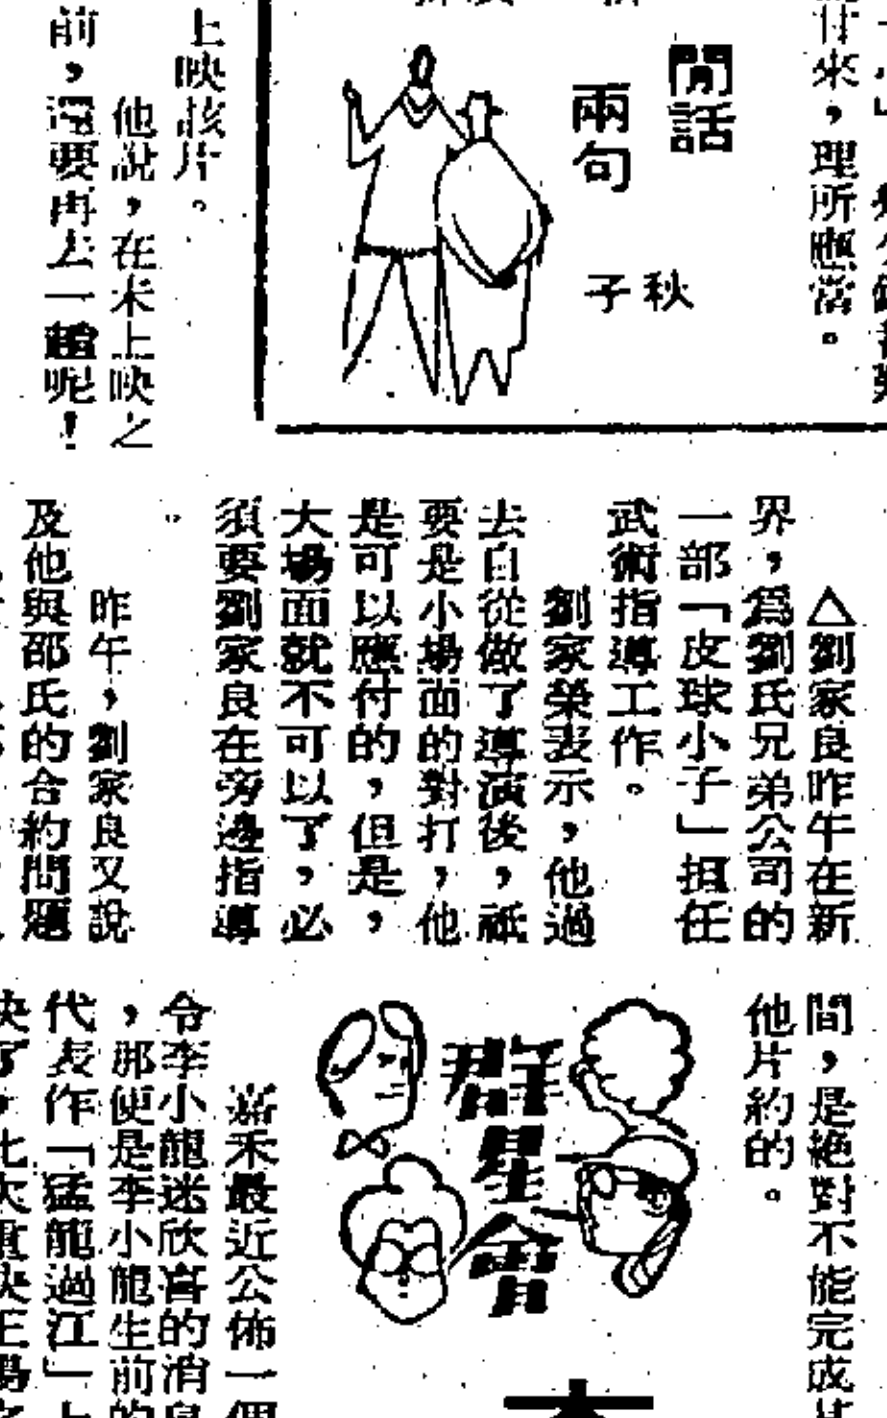 甘來，理所應當。
閒話
兩句
秋子
上映該片。
他說，在未上映之
前，還要再去一趟呢！
△劉家良昨午在新
界，爲劉氏兄弟公司的
一部「皮球小子」担任
武術指導工作。
劉家榮表示，他過
去自從做了導演後，祗
要是小場面的對打，他
是可以應付的，但是，
大場面就不可以了，必
須要劉家良在旁邊指導
。
昨午，劉家良又說
及他與邵氏的合約問題
間，是絕對不能完成其
他片約的。
群星會
嘉禾最近公佈一個
令李小龍迷欣喜的消息
，那便是李小龍生前的
代表作「猛龍過江」上